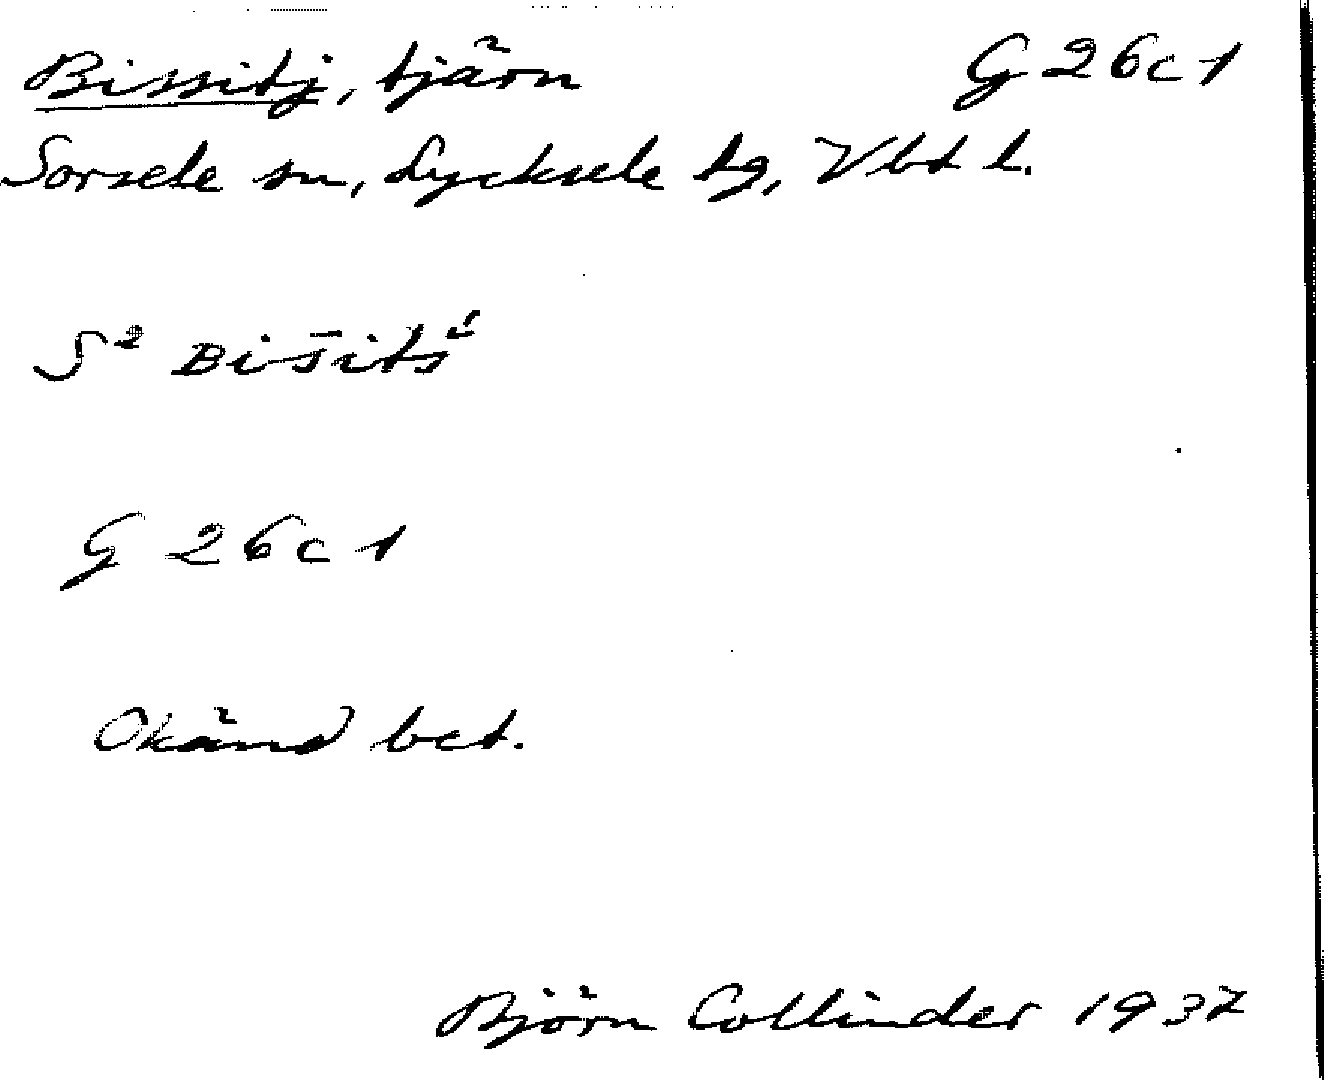 Bissitj, tjärn G 26c1
Sorsele sn, Lycksele tg, Vbt l.
S² Bīs̄itś
G 26c1
Okänd bet.
Björn Collinder 1937